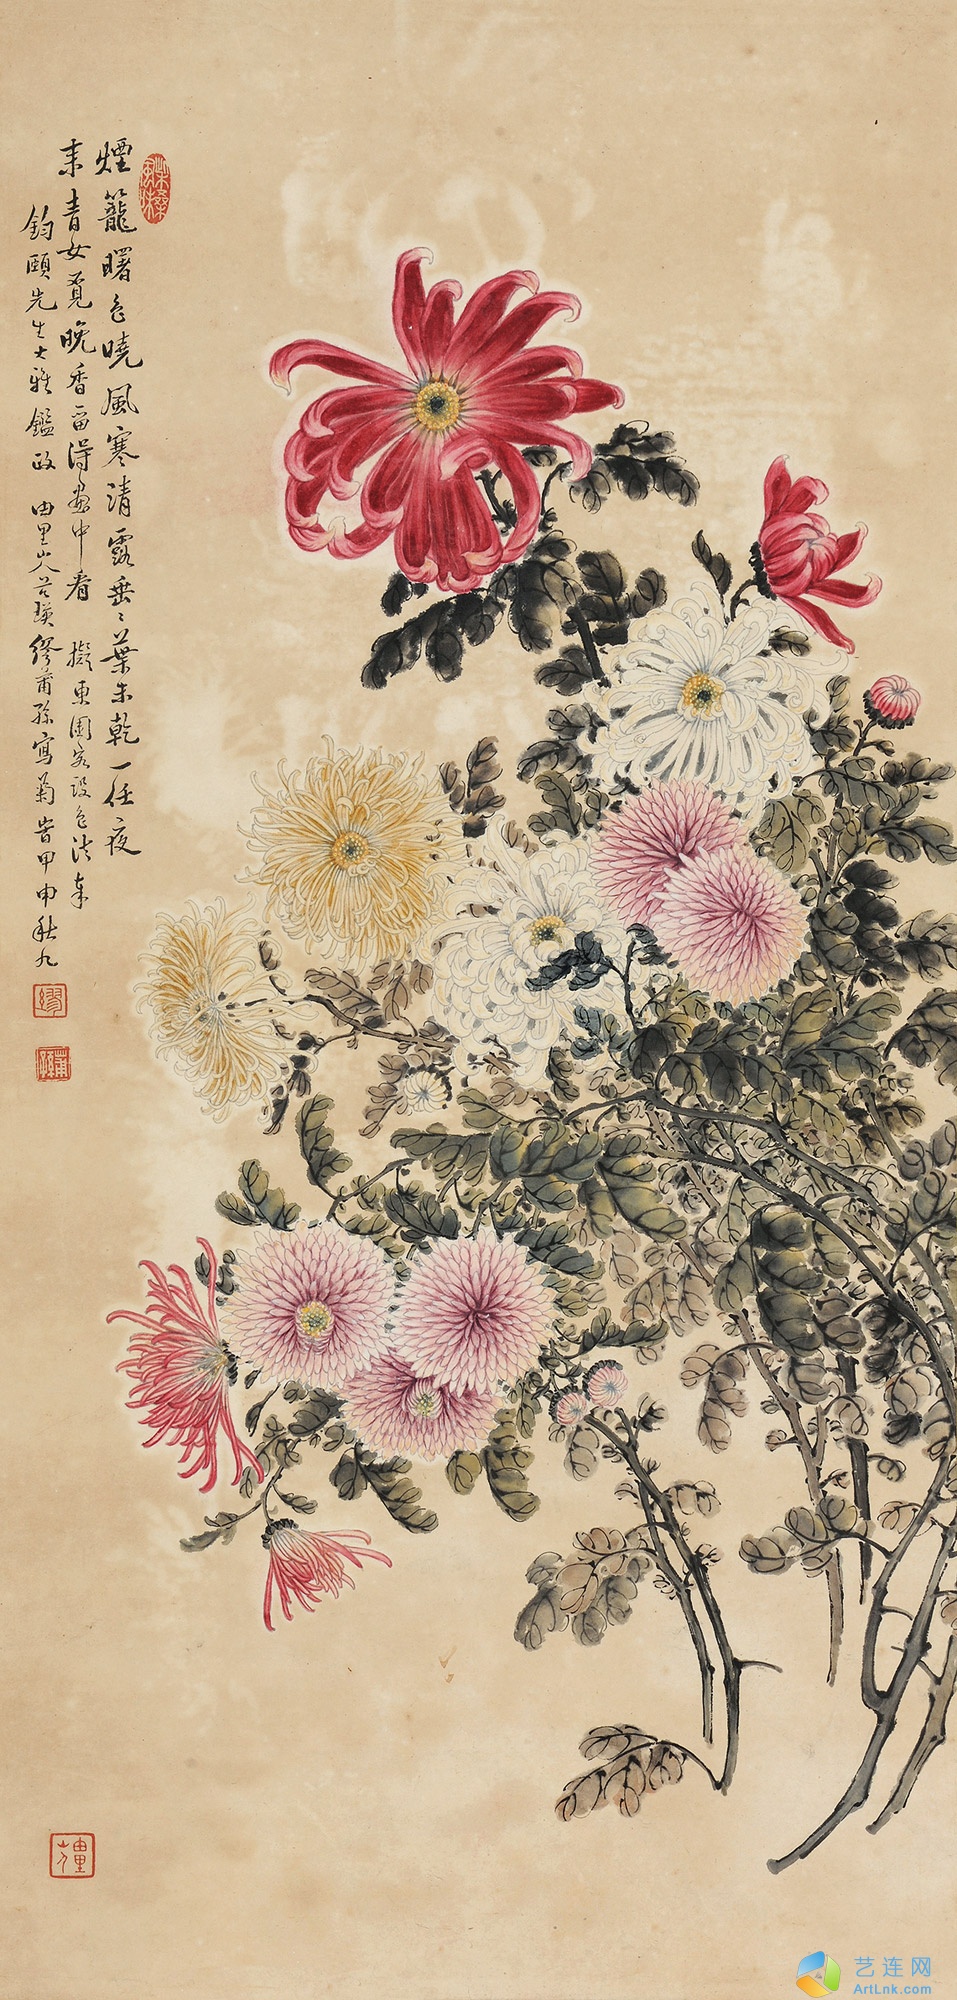 煙籠曙色曉風寒清露垂〻葉未乾一任夜
来青女覓晚香畱得畫中看 擬東園客設色法奉
鈞頤先生大雅鑑政 由里山人芸瑛繆莆孫寫菊昔甲申秋九
艺连网
ArtLnk.com